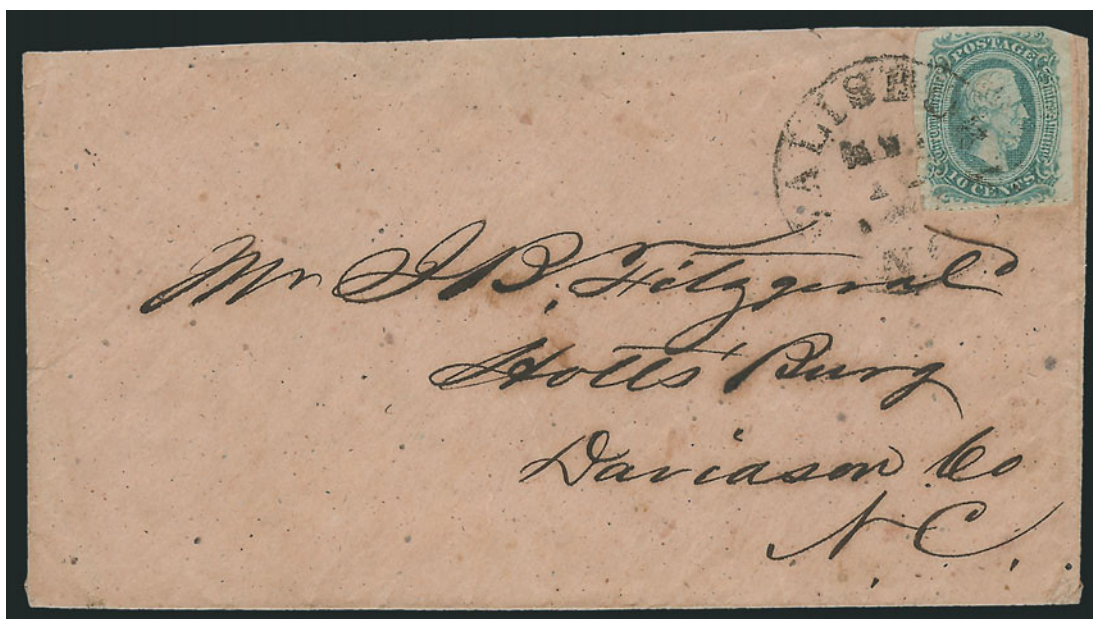 POSTAGE
10 CENTS
SALISB
N.C.
Mr J B. Fitzgerald
Holtts Burg
Davidson Co
N. C.